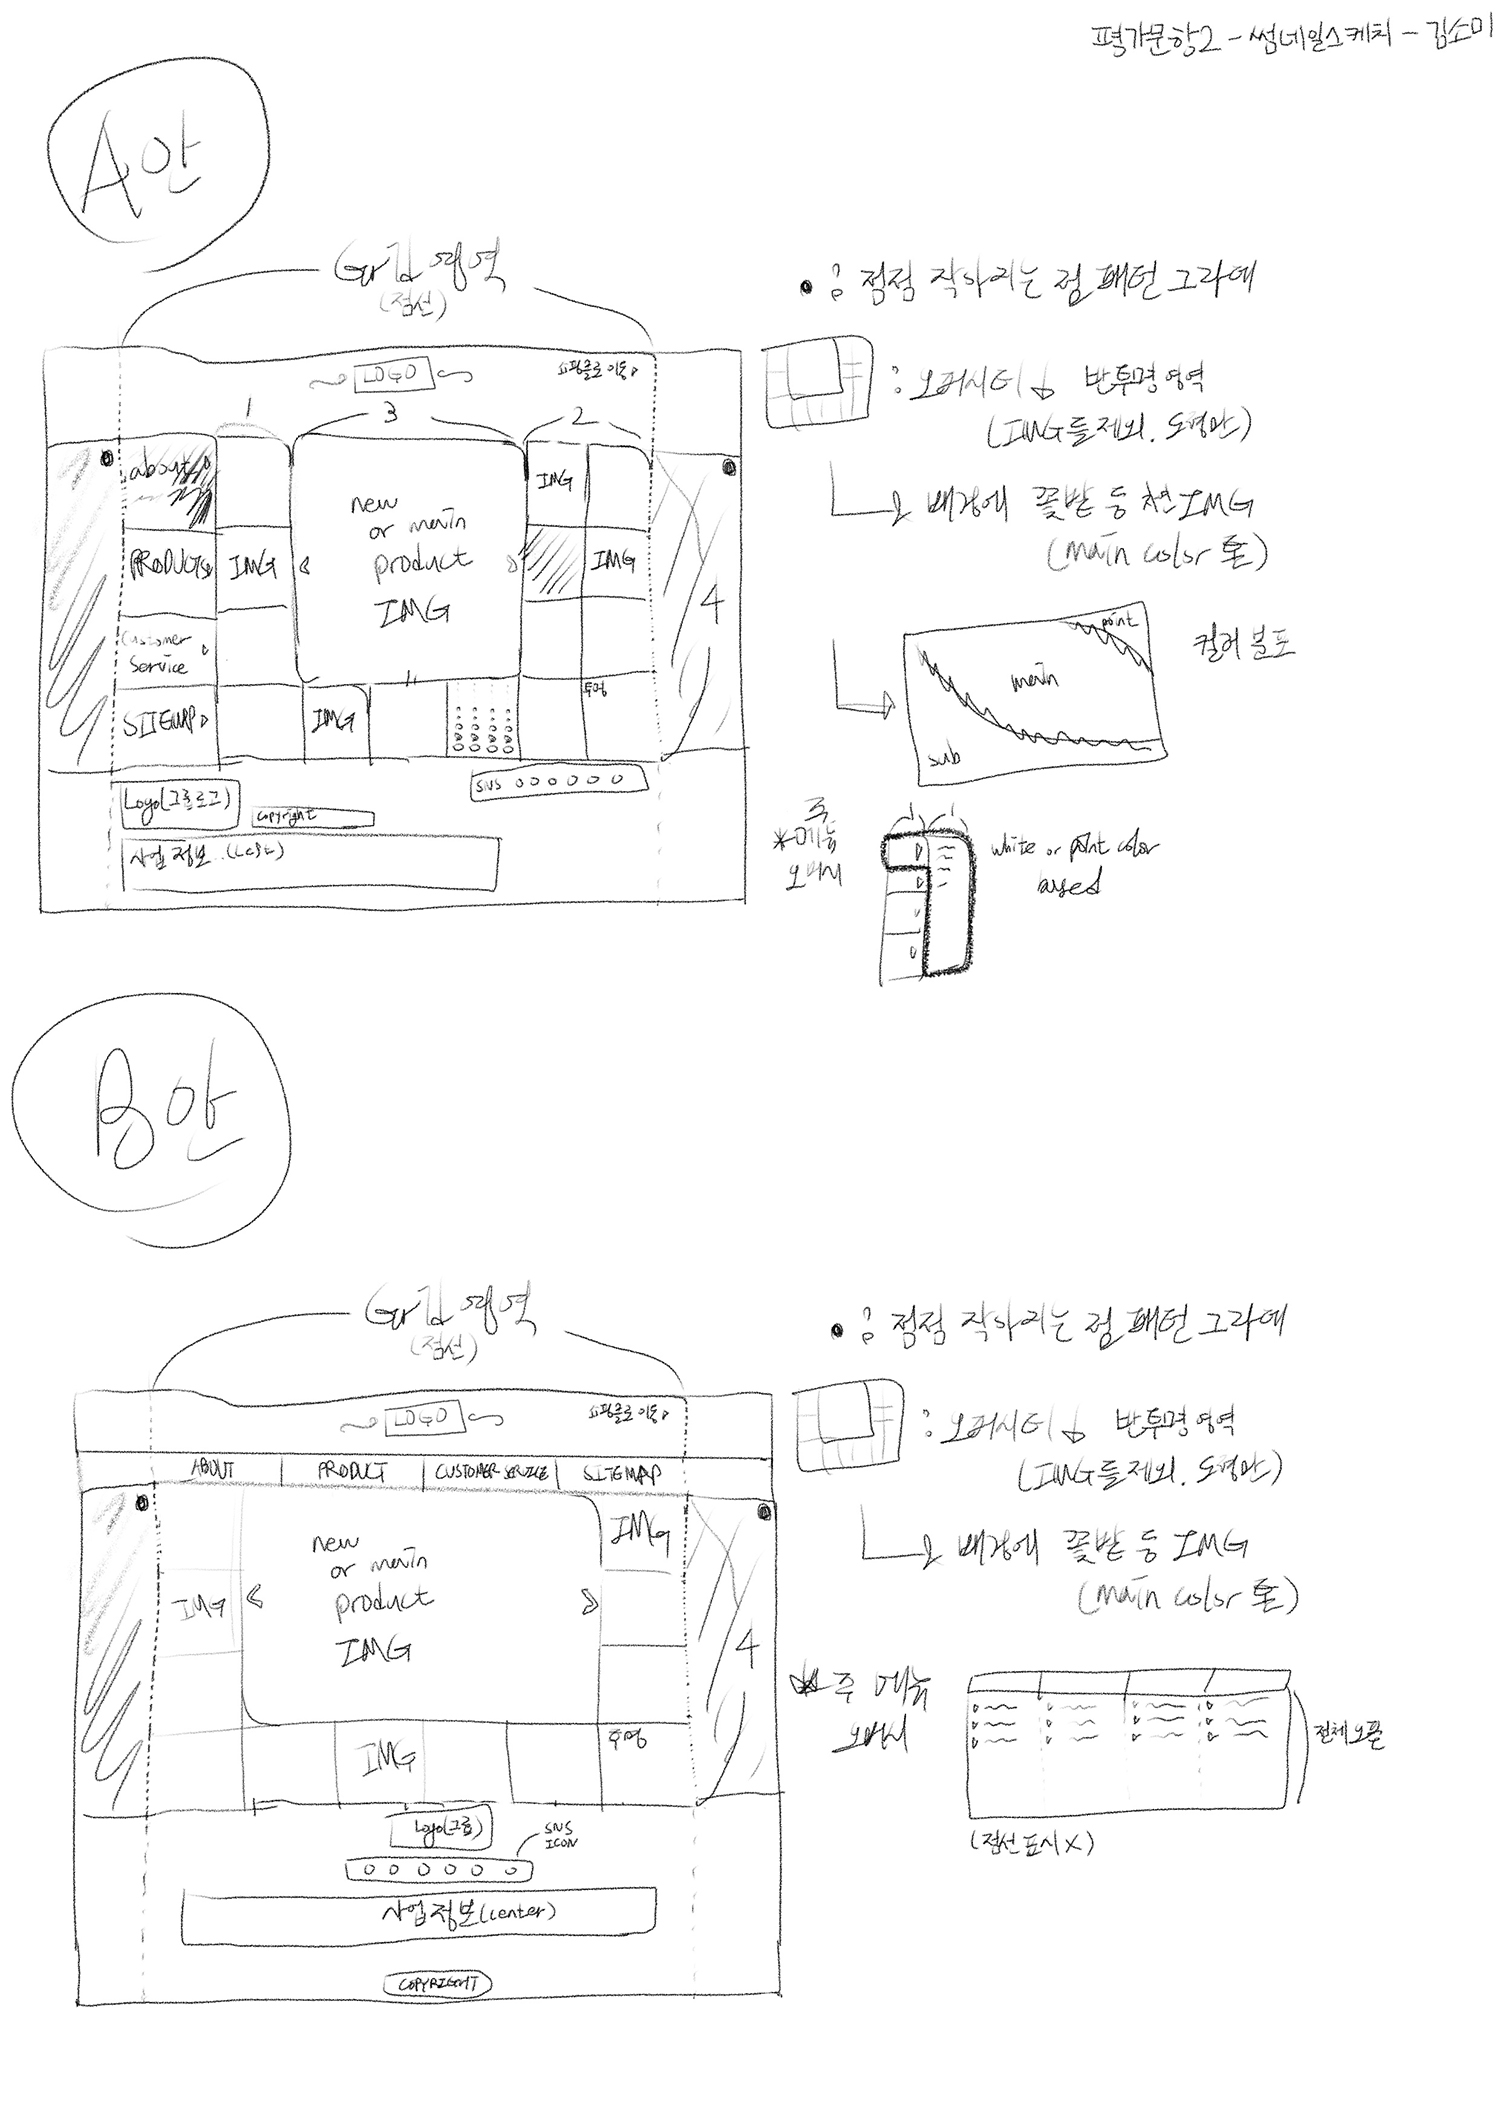 평가문항2 - 썸네일스케치 - 김소미
A안
영역
(점선)
LOGO
쇼핑몰로 이동
1
3
2
about
PRODUCTS
Customer
Service
SITEMAP
IMG
new
or main
product
IMG
IMG
IMG
IMG
투명
4
Logo(그룹로고)
copyright
SNS
사업정보 (Left)
: 점점 작아지는 점 패턴 그라데
: 오퍼시티 반투명영역
(IMG들제외. 도형만)
배경에 꽃밭 등 천 IMG
(main color 톤)
point
main
sub
컬러 분포
주
*메뉴
오버시
1
1
white or point color
based
B안
영역
(점선)
LOGO
쇼핑몰로 이동
ABOUT
PRODUCT
CUSTOMER SERVICE
SITEMAP
IMG
new
or main
product
IMG
IMG
IMG
투명
4
Logo(그룹)
SNS
ICON
사업정보(center)
COPYRIGHT
: 점점 작아지는 점 패턴 그라데
: 오퍼시티 반투명영역
(IMG들제외. 도형만)
배경에 꽃밭 등 IMG
(main color 톤)
주 메뉴
오버시
전체오픈
(점선표시X)